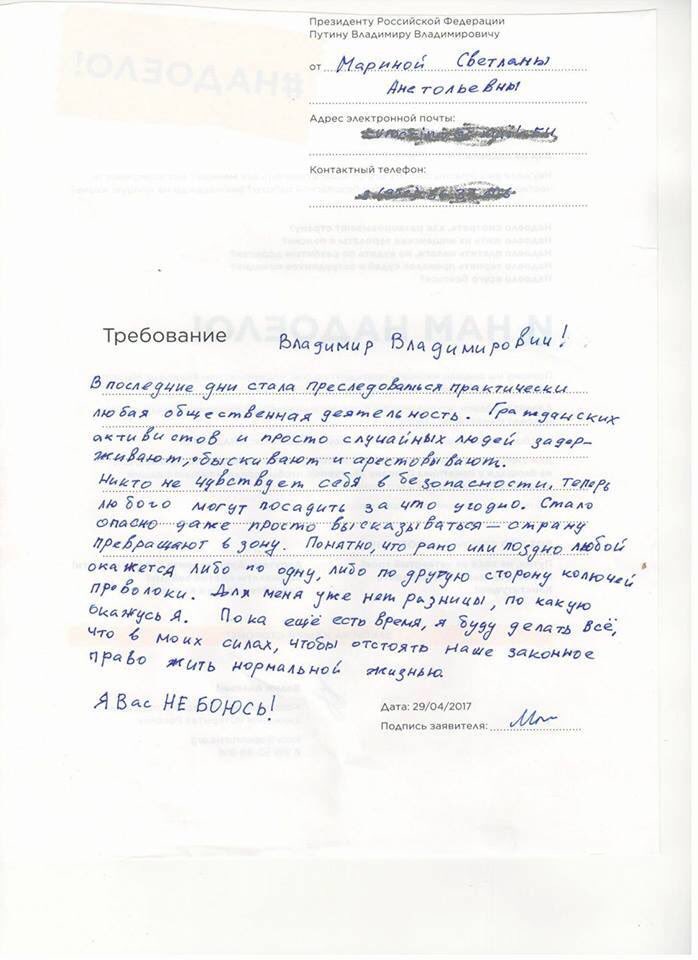 #НАДОЕЛО!
Президенту Российской Федерации
Путину Владимиру Владимировичу
от Мариной Светланы
Анатольевны
Адрес электронной почты:
Контактный телефон:
Надоело смотреть, как разворовывают страну?
И НАМ НАДОЕЛО!
Требование Владимир Владимирович!
В последние дни стала преследоваться практически
любая общественная деятельность. Гражданских
активистов и просто случайных людей задер-
живают, обыскивают и арестовывают.
Никто не чувствует себя в безопасности, теперь
любого могут посадить за что угодно. Стало
опасно даже просто высказываться – страну
превращают в зону. Понятно, что рано или поздно любой
окажется либо по одну, либо по другую сторону колючей
проволоки. Для меня уже нет разницы, по какую
окажусь я. Пока ещё есть время, я буду делать всё,
что в моих силах, чтобы отстоять наше законное
право жить нормальной жизнью.
Я Вас НЕ БОЮСЬ!
Дата: 29/04/2017
Подпись заявителя: